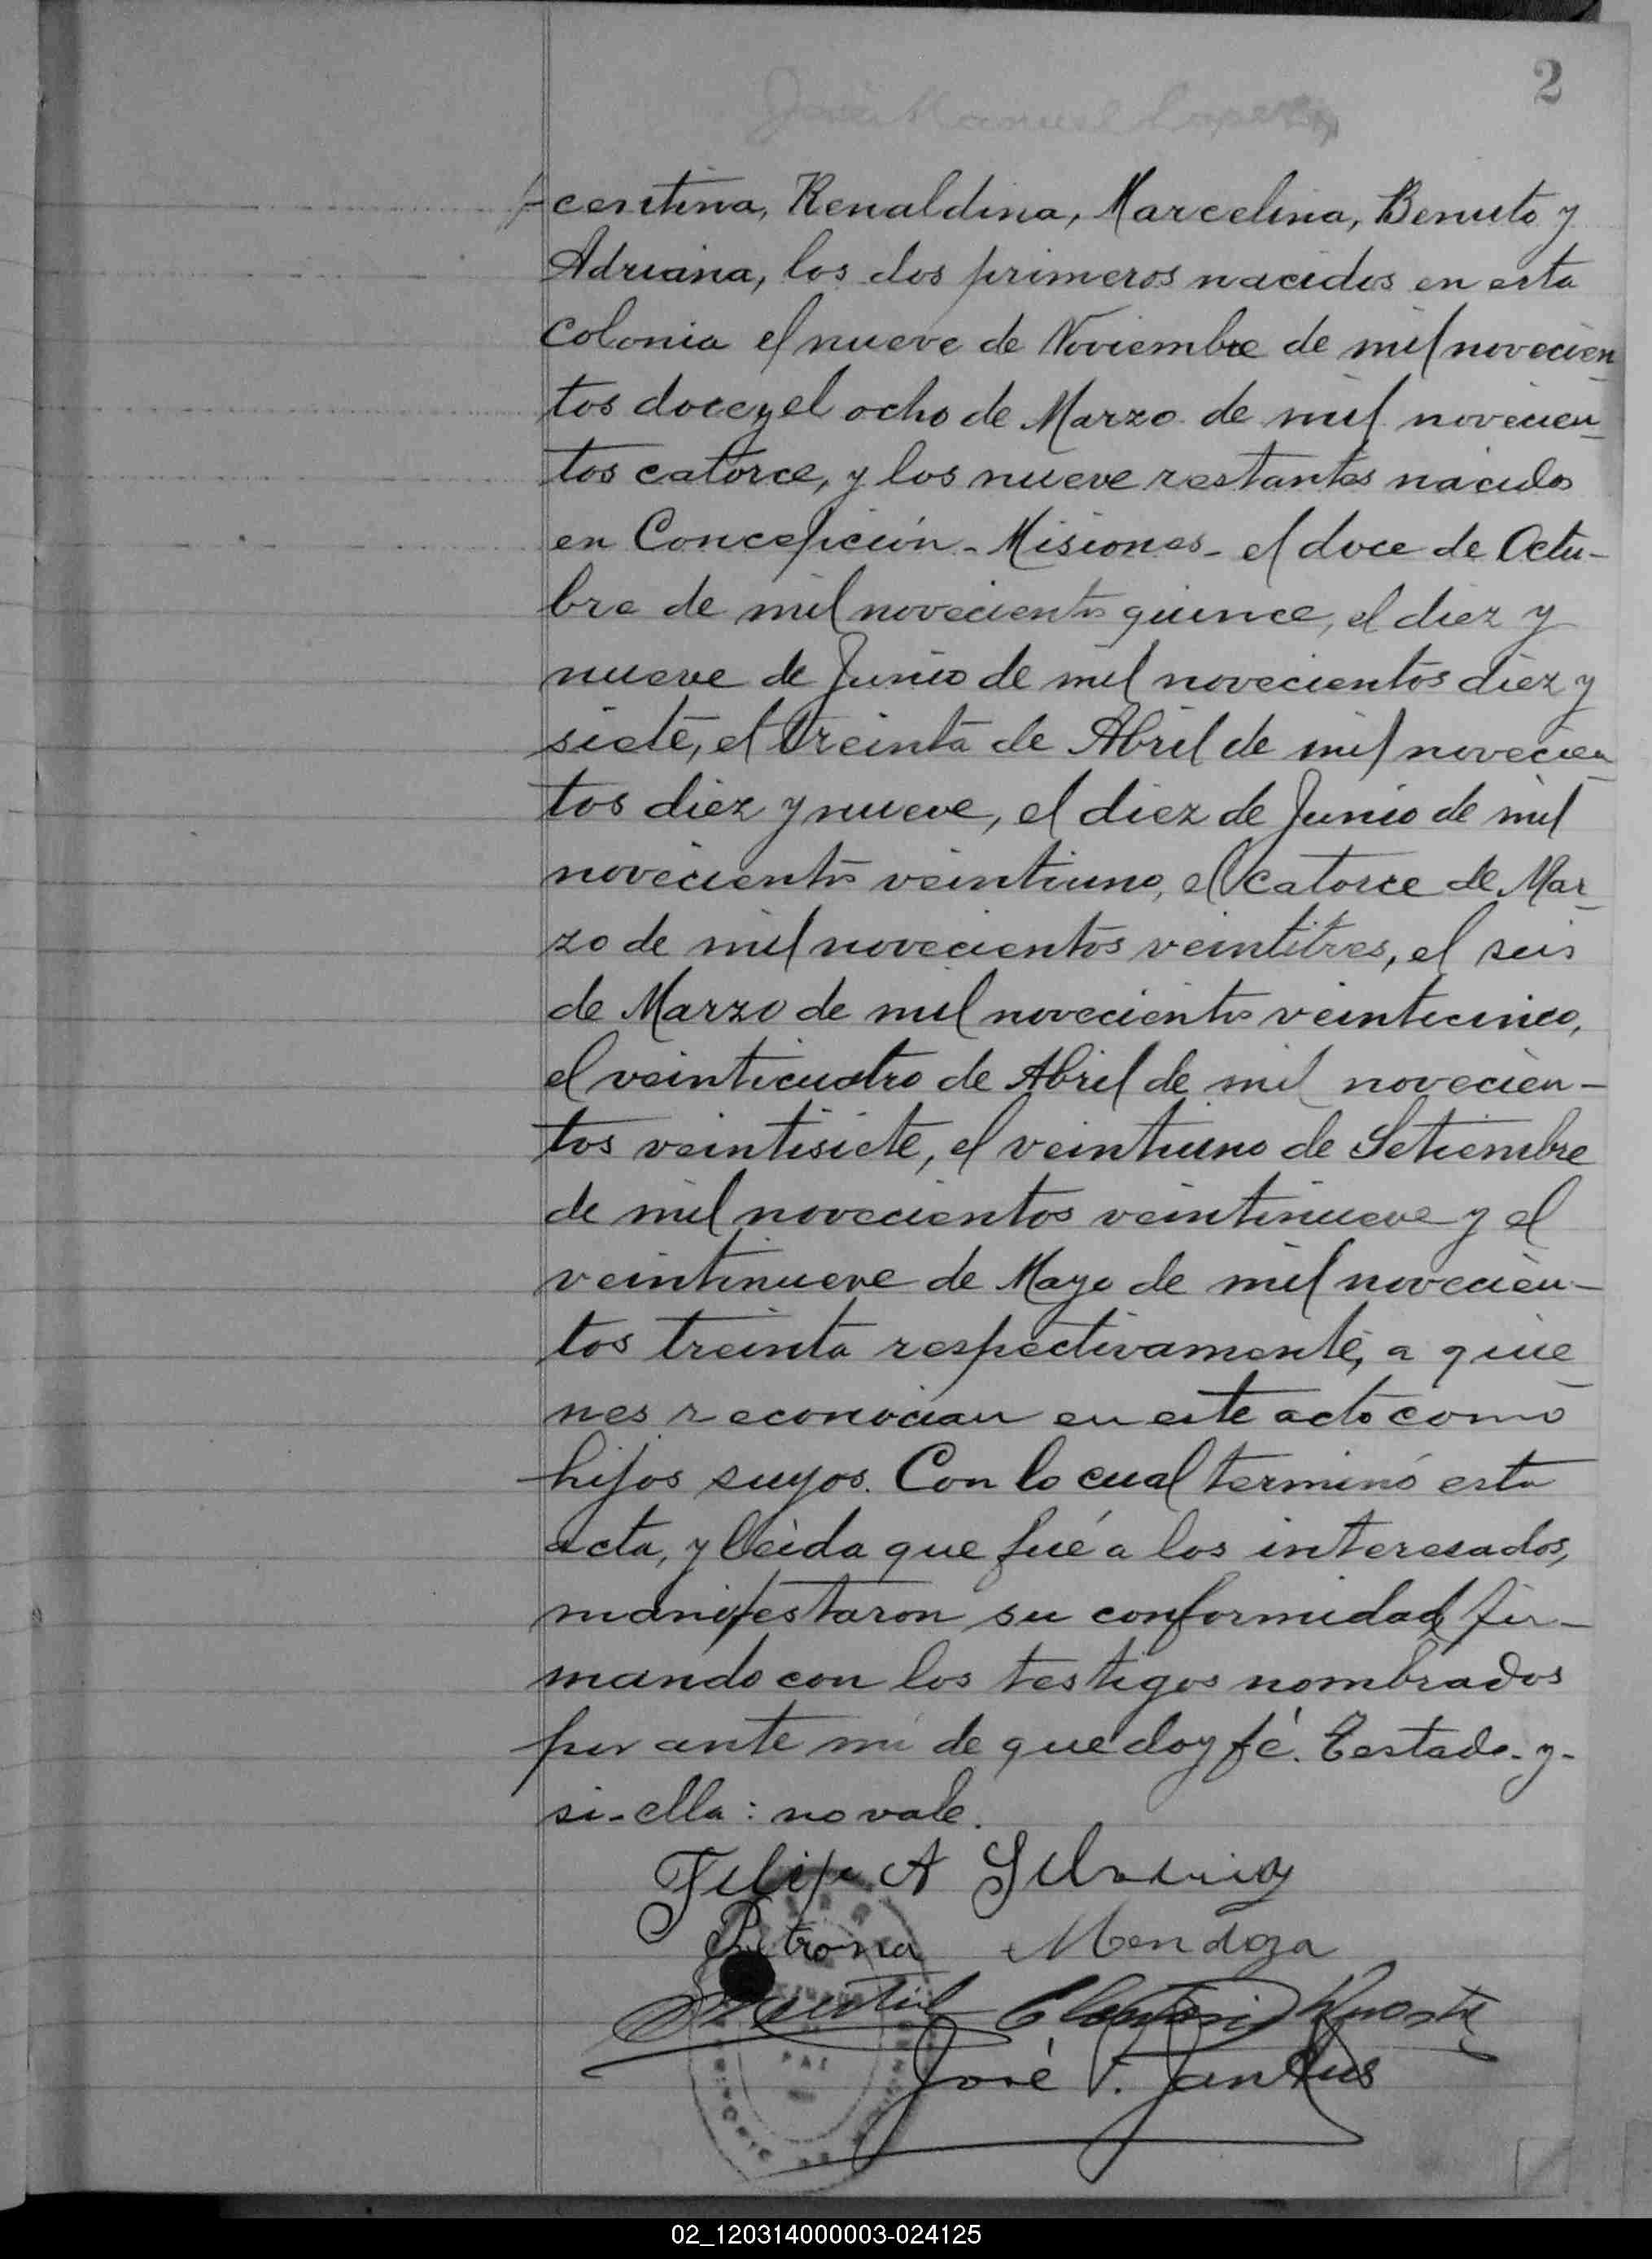 2
José Manuel Lopez
centina, Renaldina, Marcelina, Benito y
Adriana, los dos primeros nacidos en esta
Colonia el nueve de Noviembre de mil novecien
tos doce y el ocho de Marzo de mil novecien
tos catorce, y los nueve restantes nacidos
en Concepción - Misiones - el doce de Octu-
bre de mil novecientos quince, el diez y
nueve de Junio de mil novecientos diez y
siete, el treinta de Abril de mil novecien
tos diez y nueve, el diez de Junio de mil
novecientos veintiuno, el catorce de Mar
zo de mil novecientos veintitres, el seis
de Marzo de mil novecientos veinticinco,
el veinticuatro de Abril de mil novecien-
tos veintisiete, el veintiuno de Setiembre
de mil novecientos veintinueve y el
veintinueve de Mayo de mil novecien-
tos treinta respectivamente, a quie
nes reconocian en este acto como
hijos suyos. Con lo cual terminó esta
acta, y leida que fué a los interesados,
manifestaron su conformidad fir-
mando con los testigos nombrados
por ante mi de que doy fé. Testado - y -
si - ella : no vale.
Felipe A
Petrona Mendoza
José F.
02_120314000003-024125